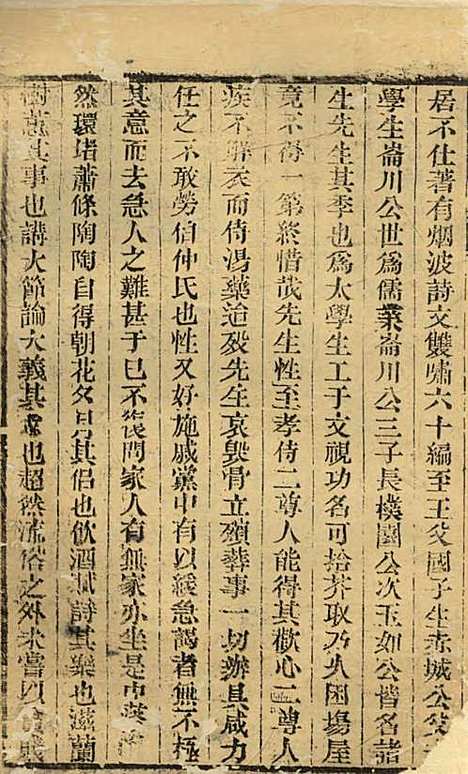 居不仕著有烟波詩文雙嘯六十編至王父國子生赤城公父
學生崙川公世爲儒業崙川公三子長樸園公次玉如公皆名諸
生先生其季也爲太學生工于文視功名可拾芥取乃久困場屋
竟不得一第終惜哉先生性至孝侍二尊人能得其歡心二尊人
疾不解衣而侍湯藥迨歿先生哀毀骨立殯葬事一切辦具咸力
任之不敢勞伯仲氏也性又好施戚黨中有以緩急謁者無不極
其意而去急人之難甚于已不復問家人有無家亦坐是中落
然環堵蕭條陶陶自得朝花夕月其侶也飲酒賦詩其樂也滋蘭
樹蕙其事也講大節論大義其也超然流俗之外未嘗以